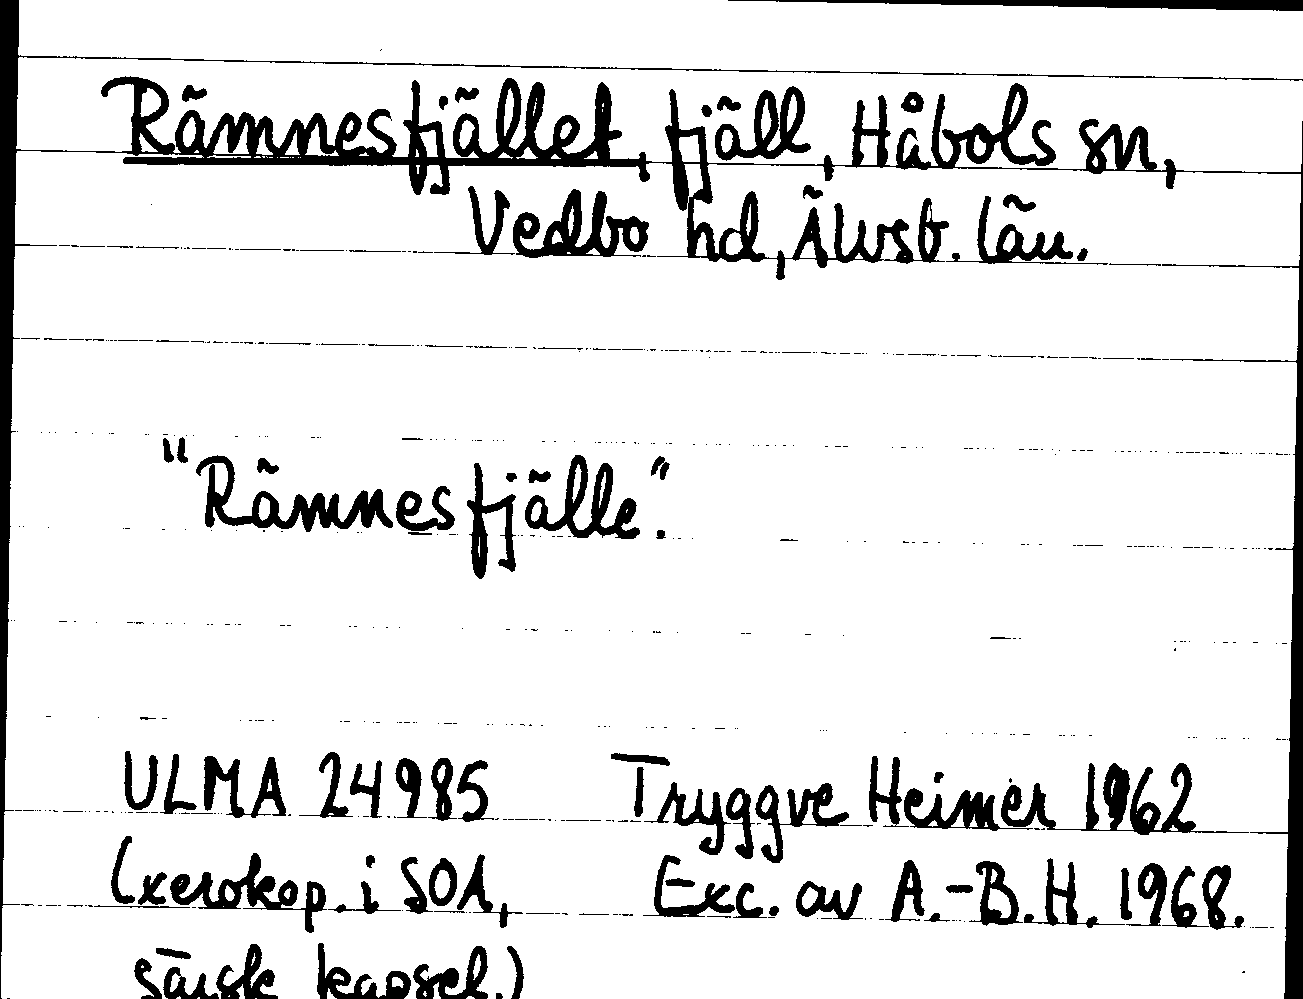 Rämnesfjället, fjäll, Håbols sn,
Vedbo hd, Älvsb. län.
"Rämnesfjälle".
ULMA 24985 Tryggve Heimer 1962
(xerokop. i SOA, Exc. av A.-B.H. 1968.
särsk kapsel.)